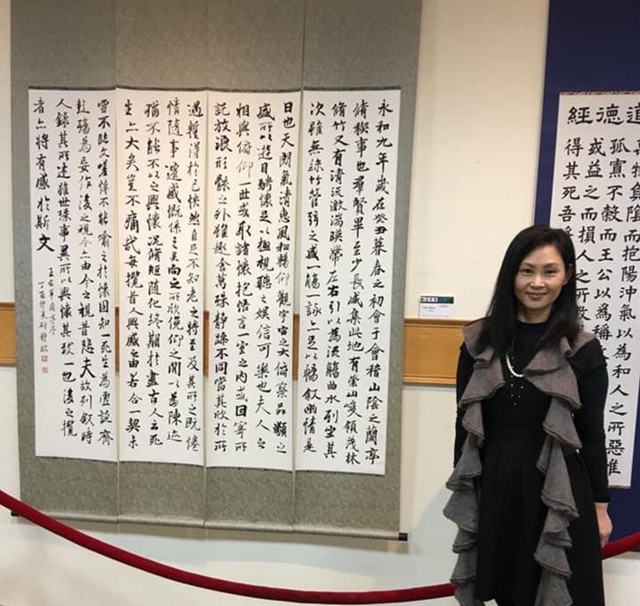 永和九年歲在癸丑暮春之初會于會稽山陰之蘭亭
脩稧事也羣賢畢至少長咸集此地有崇山峻領茂林
脩竹又有清流激湍暎帶左右引以為流觴曲水列坐其
次雖無絲竹管弦之盛一觴一詠亦足以暢敘幽情是
日也天朗氣清惠風和暢仰觀宇宙之大俯察品類之
盛所以遊目騁懷足以極視聽之娛信可樂也夫人之
相與俯仰一世或取諸懷抱悟言一室之內或因寄所
託放浪形骸之外雖趣舍萬殊靜躁不同當其欣於所
遇蹔得於己快然自足不知老之將至及其所之既惓
情隨事遷感慨係之矣向之所欣俛仰之閒以為陳迹
猶不能不以之興懷況脩短隨化終期於盡古人云死
生亦大矣豈不痛哉每攬昔人興感之由若合一契未
嘗不臨文嗟悼不能喻之於懷固知一死生為虛誕齊
彭殤為妄作後之視今亦由今之視昔悲夫故列敘時
人錄其所述雖世殊事異所以興懷其致一也後之攬
者亦將有感於斯文
王右軍蘭亭序
丁酉仲夏
道德經
物負陰而抱陽沖氣以為和人之所惡惟
孤寡不穀而王公以為稱
或益之而損人之所教
得其死吾